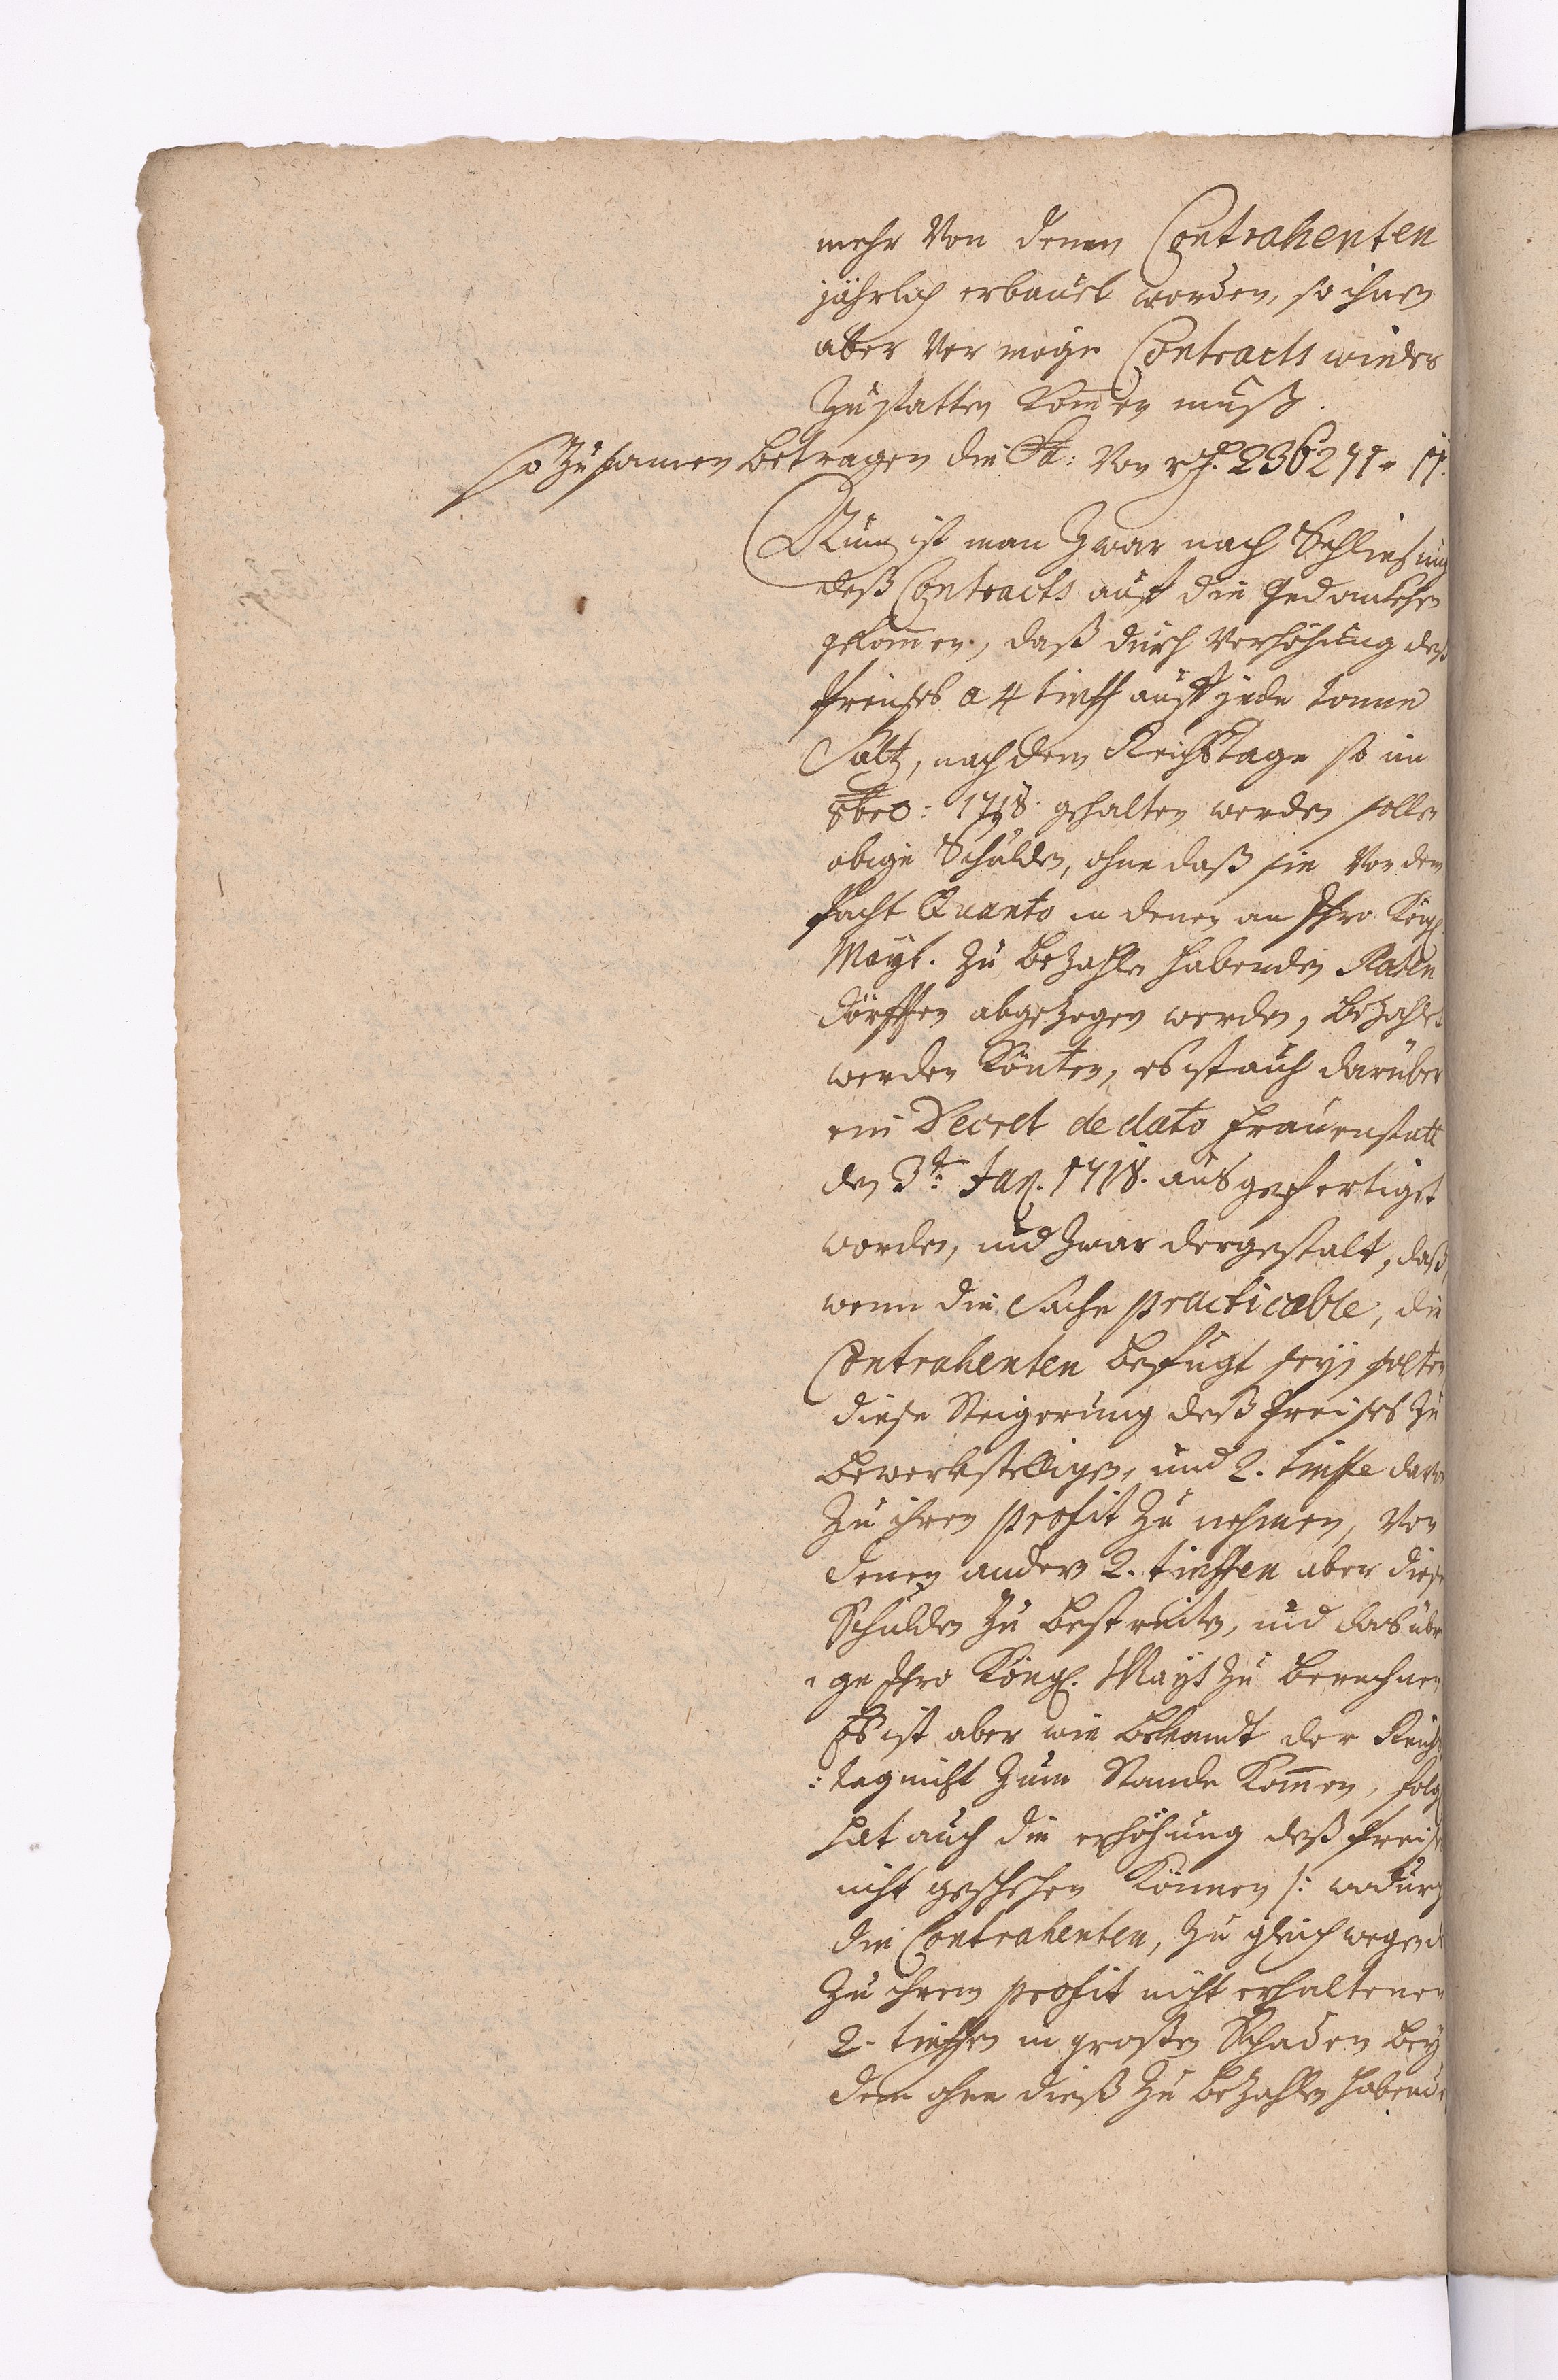 mehr von denen Contrahenten
jährlich erbauet worden, so ihnen
aber vermöge Contracts wieder
zustatten kom̄en muß.
so zusamen betragen die Sa: von
Nun ist man zwar nach Schließung
deß Contracts auf die Gedancken
gekom̄en, daß durch Verhöhung deß
Preißes a 4 tinff auff jede Tonne
Saltz, nach dem Reichstage so im
8bro: 1718. gehalten werden sollen
obige Schulden, ohne daß sie von dem
Pacht Quanto in denen an Ihro Kögl.
Mayt. zu bezahlen habenden Raten
dörffen abgezogen werden, bezahlt
werden könten, es ist auch darüber
ein Decret de dato Frauenstatt
den 3t: Jan. 1718. ausgefertiget
worden, und zwar dergestalt, daß
wenn die Sache practicable, die
Contrahenten befugt seyn solten
diese Steigerung deß Preißes zu
bewerkstelligen, und 2. tinffe davon
zu ihren profit zu nehmen, von
denen andern 2. tinffen aber diese
Schulden zu bestreiten, und das übri
ge Ihro Köngl. Mayt zu berechnen
Es ist aber wie bekandt der Reichs
:tag nicht zum Stande kom̄en, folgl
hat auch die erhöhung deß Preises
nicht geschehen können /: wodurch
die Contrahenten, zu gleich wegen der
zu ihrem profit nicht erhaltenen
2. tinffen in großen Schaden bey
dem ohne dieß zu bezahlen habenden